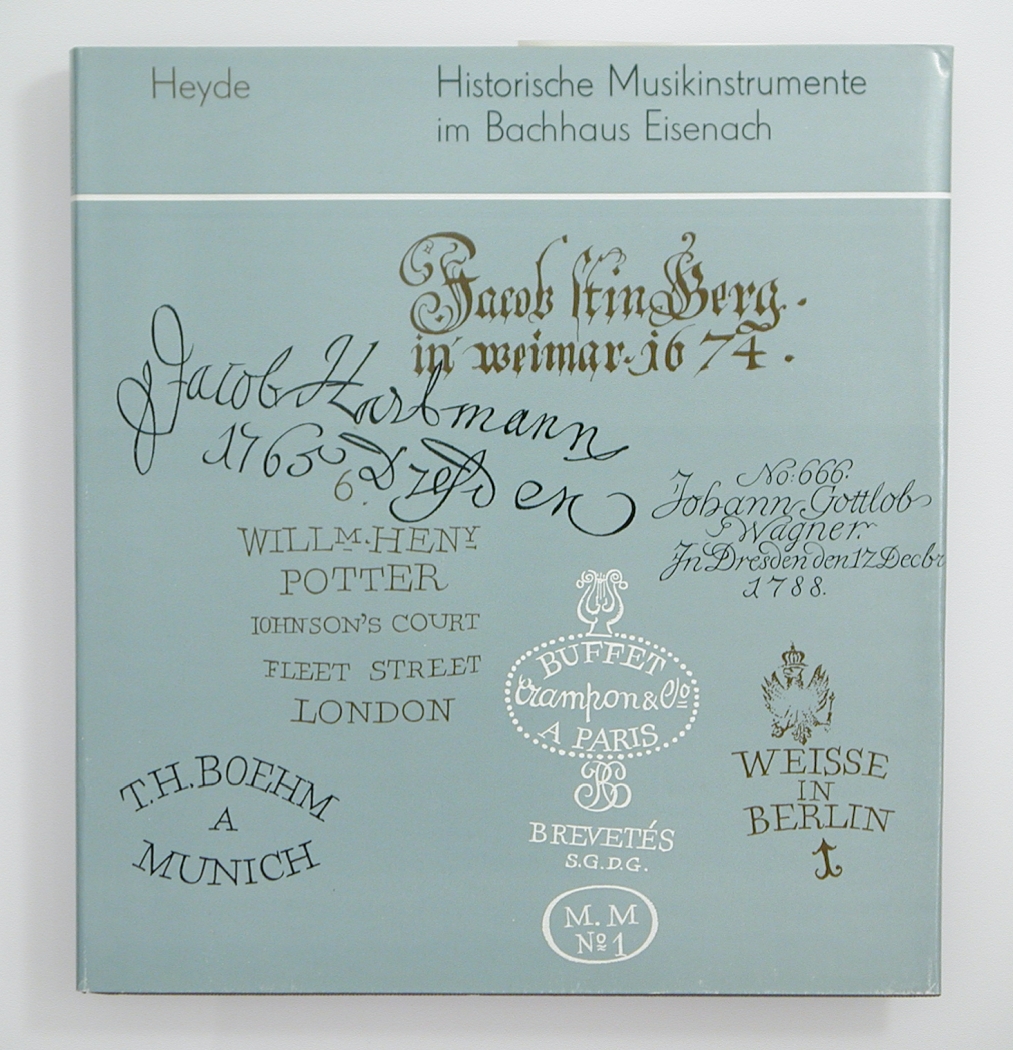 Heyde
Historische Musikinstrumente
im Bachhaus Eisenach
Jacob stin Berg.
in weimar. 16 74.
Jacob Hartmann
1765
6.
Dresden
No: 666.
Johann Gottlob
Wagner.
In Dresden den 12 Decbr
1788.
WILLM. HENY
POTTER
IOHNSON'S COURT
FLEET STREET
LONDON
BUFFET
Crampon & Cio
A PARIS
BREVETÉS
S.G.D.G.
M.M
No 1
WEISSE
IN
BERLIN
T.H.BOEHM
A
MUNICH